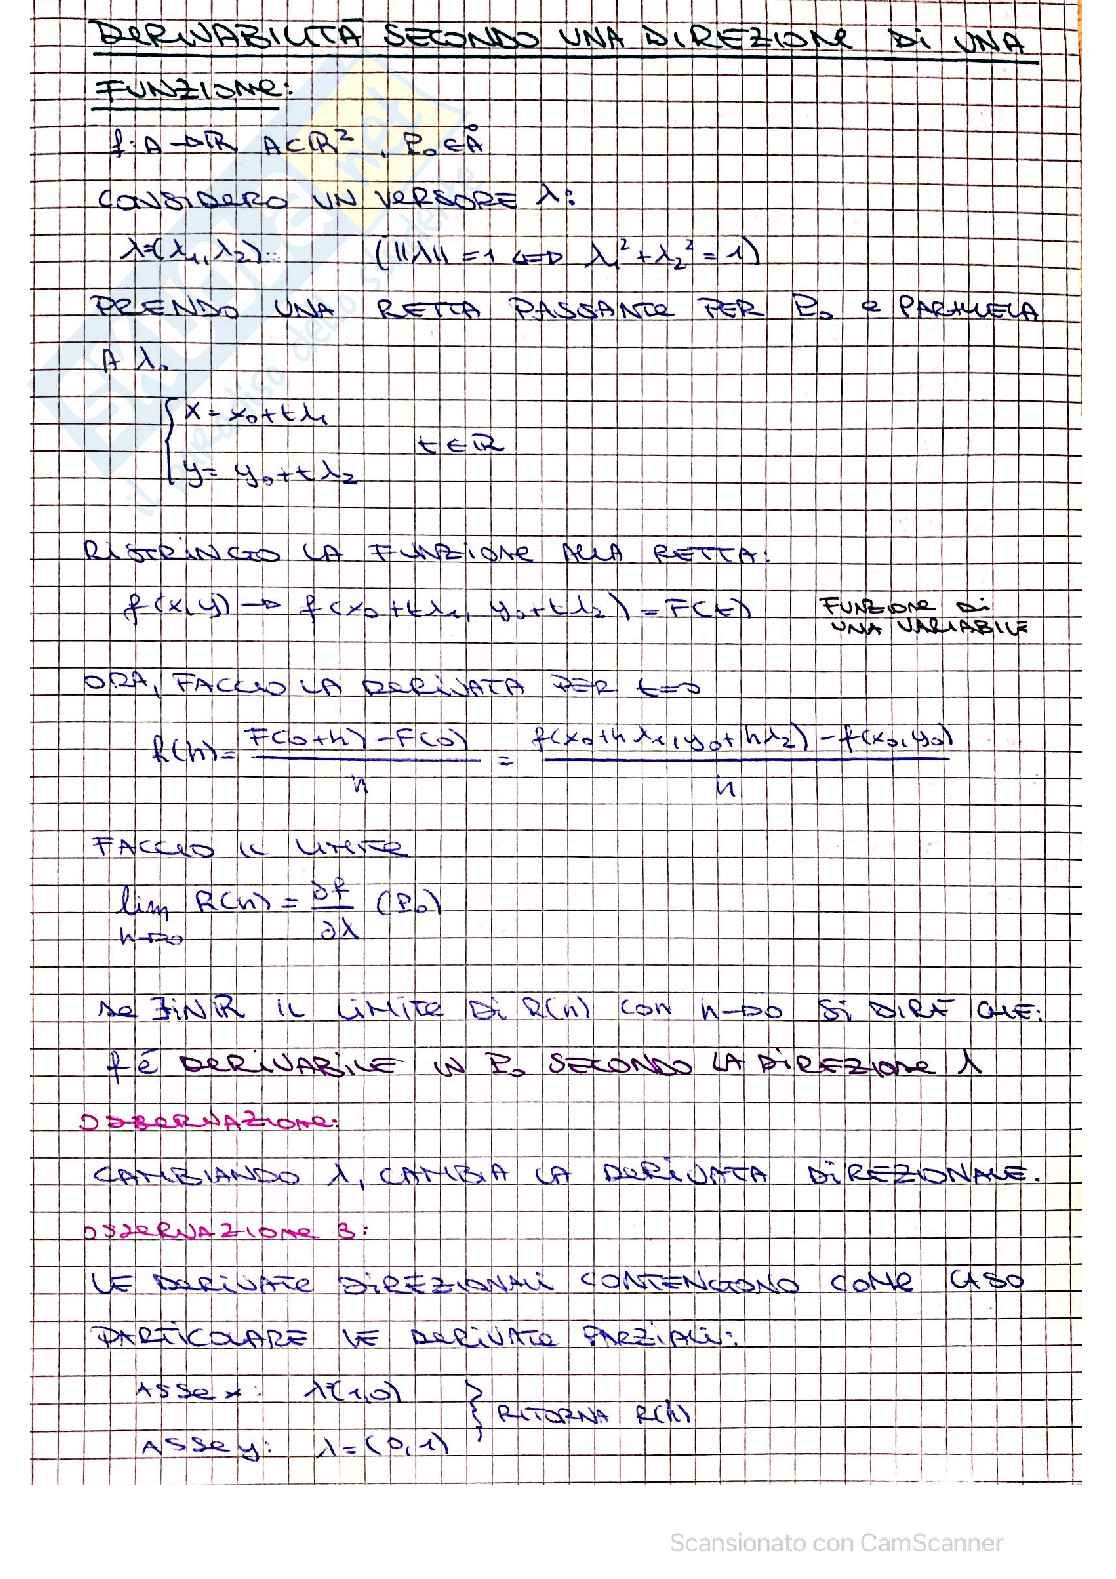 DERIVABILITÀ SECONDO UNA DIREZIONE DI UNA
FUNZIONE:
f: A→R A⊂R², P₀∈Å
CONSIDERO UN VERSORE λ:
λ=(λ₁,λ₂). (||λ||=1 ⇔ λ₁²+λ₂²=1)
PRENDO UNA RETTA PASSANTE PER P₀ e PARALLELA
A λ.
{x=x₀+tλ₁
{y=y₀+tλ₂ t∈R
RISTRINGO LA FUNZIONE ALLA RETTA:
f(x,y)→f(x₀+tλ₁, y₀+tλ₂)=F(t) FUNZIONE DI
UNA VARIABILE
ORA, FACCIO LA DERIVATA PER t=0
R(h)= F(0+h)-F(0) / h = f(x₀+hλ₁,y₀+hλ₂)-f(x₀,y₀) / h
FACCIO IL LIMITE
lim R(h)= ∂f/∂λ (P₀)
h→0
SE ∃ IN R IL LIMITE DI R(h) CON h→0 SI DIRÀ CHE:
f é DERIVABILE IN P₀ SECONDO LA DIREZIONE λ
OSSERVAZIONE:
CAMBIANDO λ, CAMBIA LA DERIVATA DIREZIONALE.
OSSERVAZIONE 3:
LE DERIVATE DIREZIONALI CONTENGONO COME CASO
PARTICOLARE LE DERIVATE PARZIALI:
ASSE x: λ=(1,0)
} RITORNA R(h)
ASSE y: λ=(0,1)
Scansionato con CamScanner